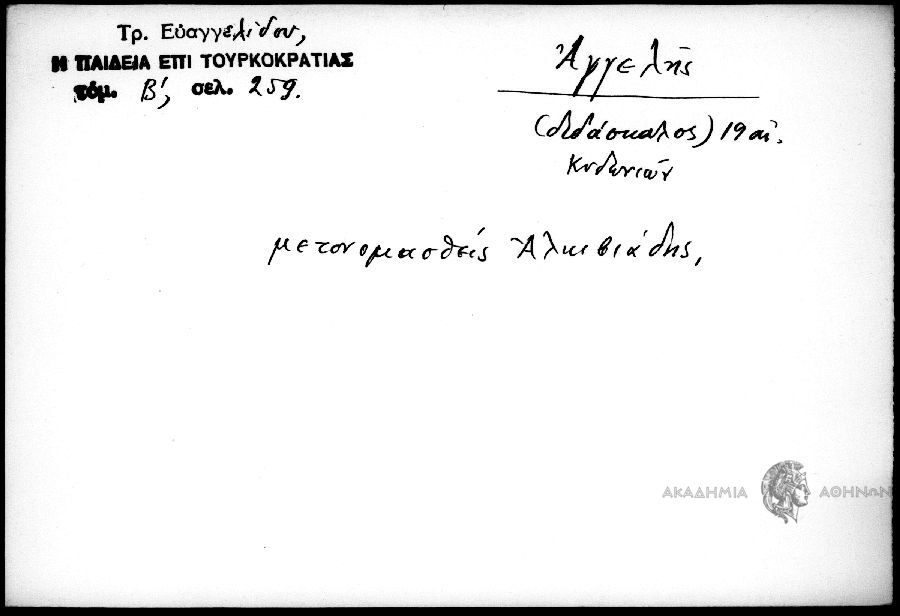 Τρ. Εὐαγγελίδου,
Η ΠΑΙΔΕΙΑ ΕΠΙ ΤΟΥΡΚΟΚΡΑΤΙΑΣ
τόμ. Β', σελ. 259.
Ἀγγελῆς
(διδάσκαλος) 19 αἰ.
Κυδωνιῶν
μετονομασθείς Ἀλκιβιάδης,
ΑΚΑΔΗΜΙΑ ΑΘΗΝΩΝ